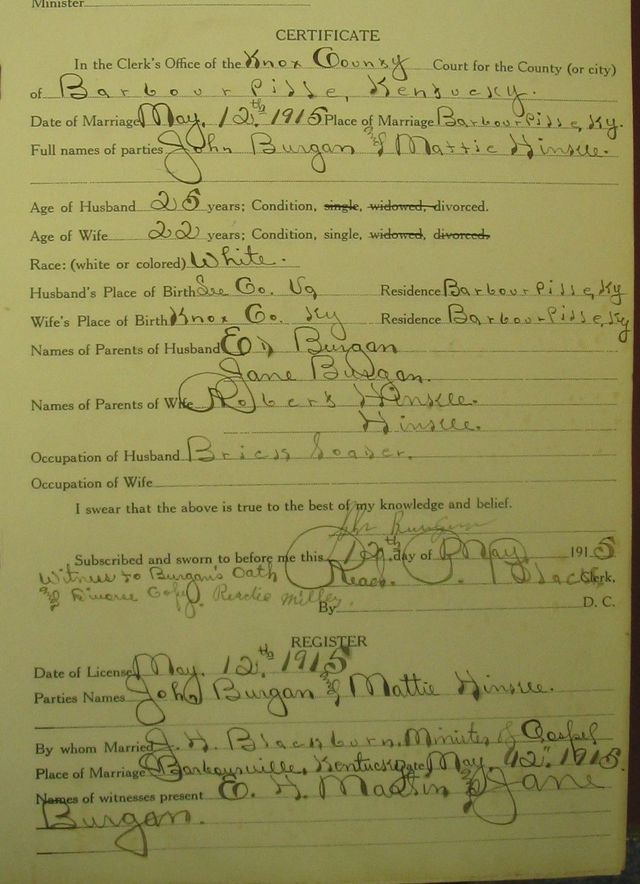 Minister
CERTIFICATE
In the Clerk's Office of the Knox County Court for the County (or city)
of Barbourville, Kentucky.
Date of Marriage May, 12th 1915 Place of Marriage Barbourville, Ky.
Full names of parties John Burgan & Mattie Hinkle.
Age of Husband 25 years; Condition, single, widowed, divorced.
Age of Wife 22 years; Condition, single, widowed, divorced.
Race: (white or colored) White.
Husband's Place of Birth Lee Co. Va Residence Barbourville, Ky
Wife's Place of Birth Knox Co. Ky Residence Barbourville, Ky
Names of Parents of Husband Ed Burgan
Jane Burgan.
Names of Parents of Wife Robert Hinkle.
Hinkle.
Occupation of Husband Brick Loader.
Occupation of Wife
I swear that the above is true to the best of my knowledge and belief.
Burgan
Subscribed and sworn to before me this 12th day of May 1915
Witness to Burgan's Oath Read P. Black Clerk,
& Divorce Copy. Miller. By D. C.
REGISTER
Date of License May, 12th 1915
Parties Names John Burgan & Mattie Hinkle.
By whom Married J. H. Blackburn, Minister of Gospel
Place of Marriage Barbourville, Kentucky Date May, 12" 1915.
Names of witnesses present E. H. Martin & Jane
Burgan.